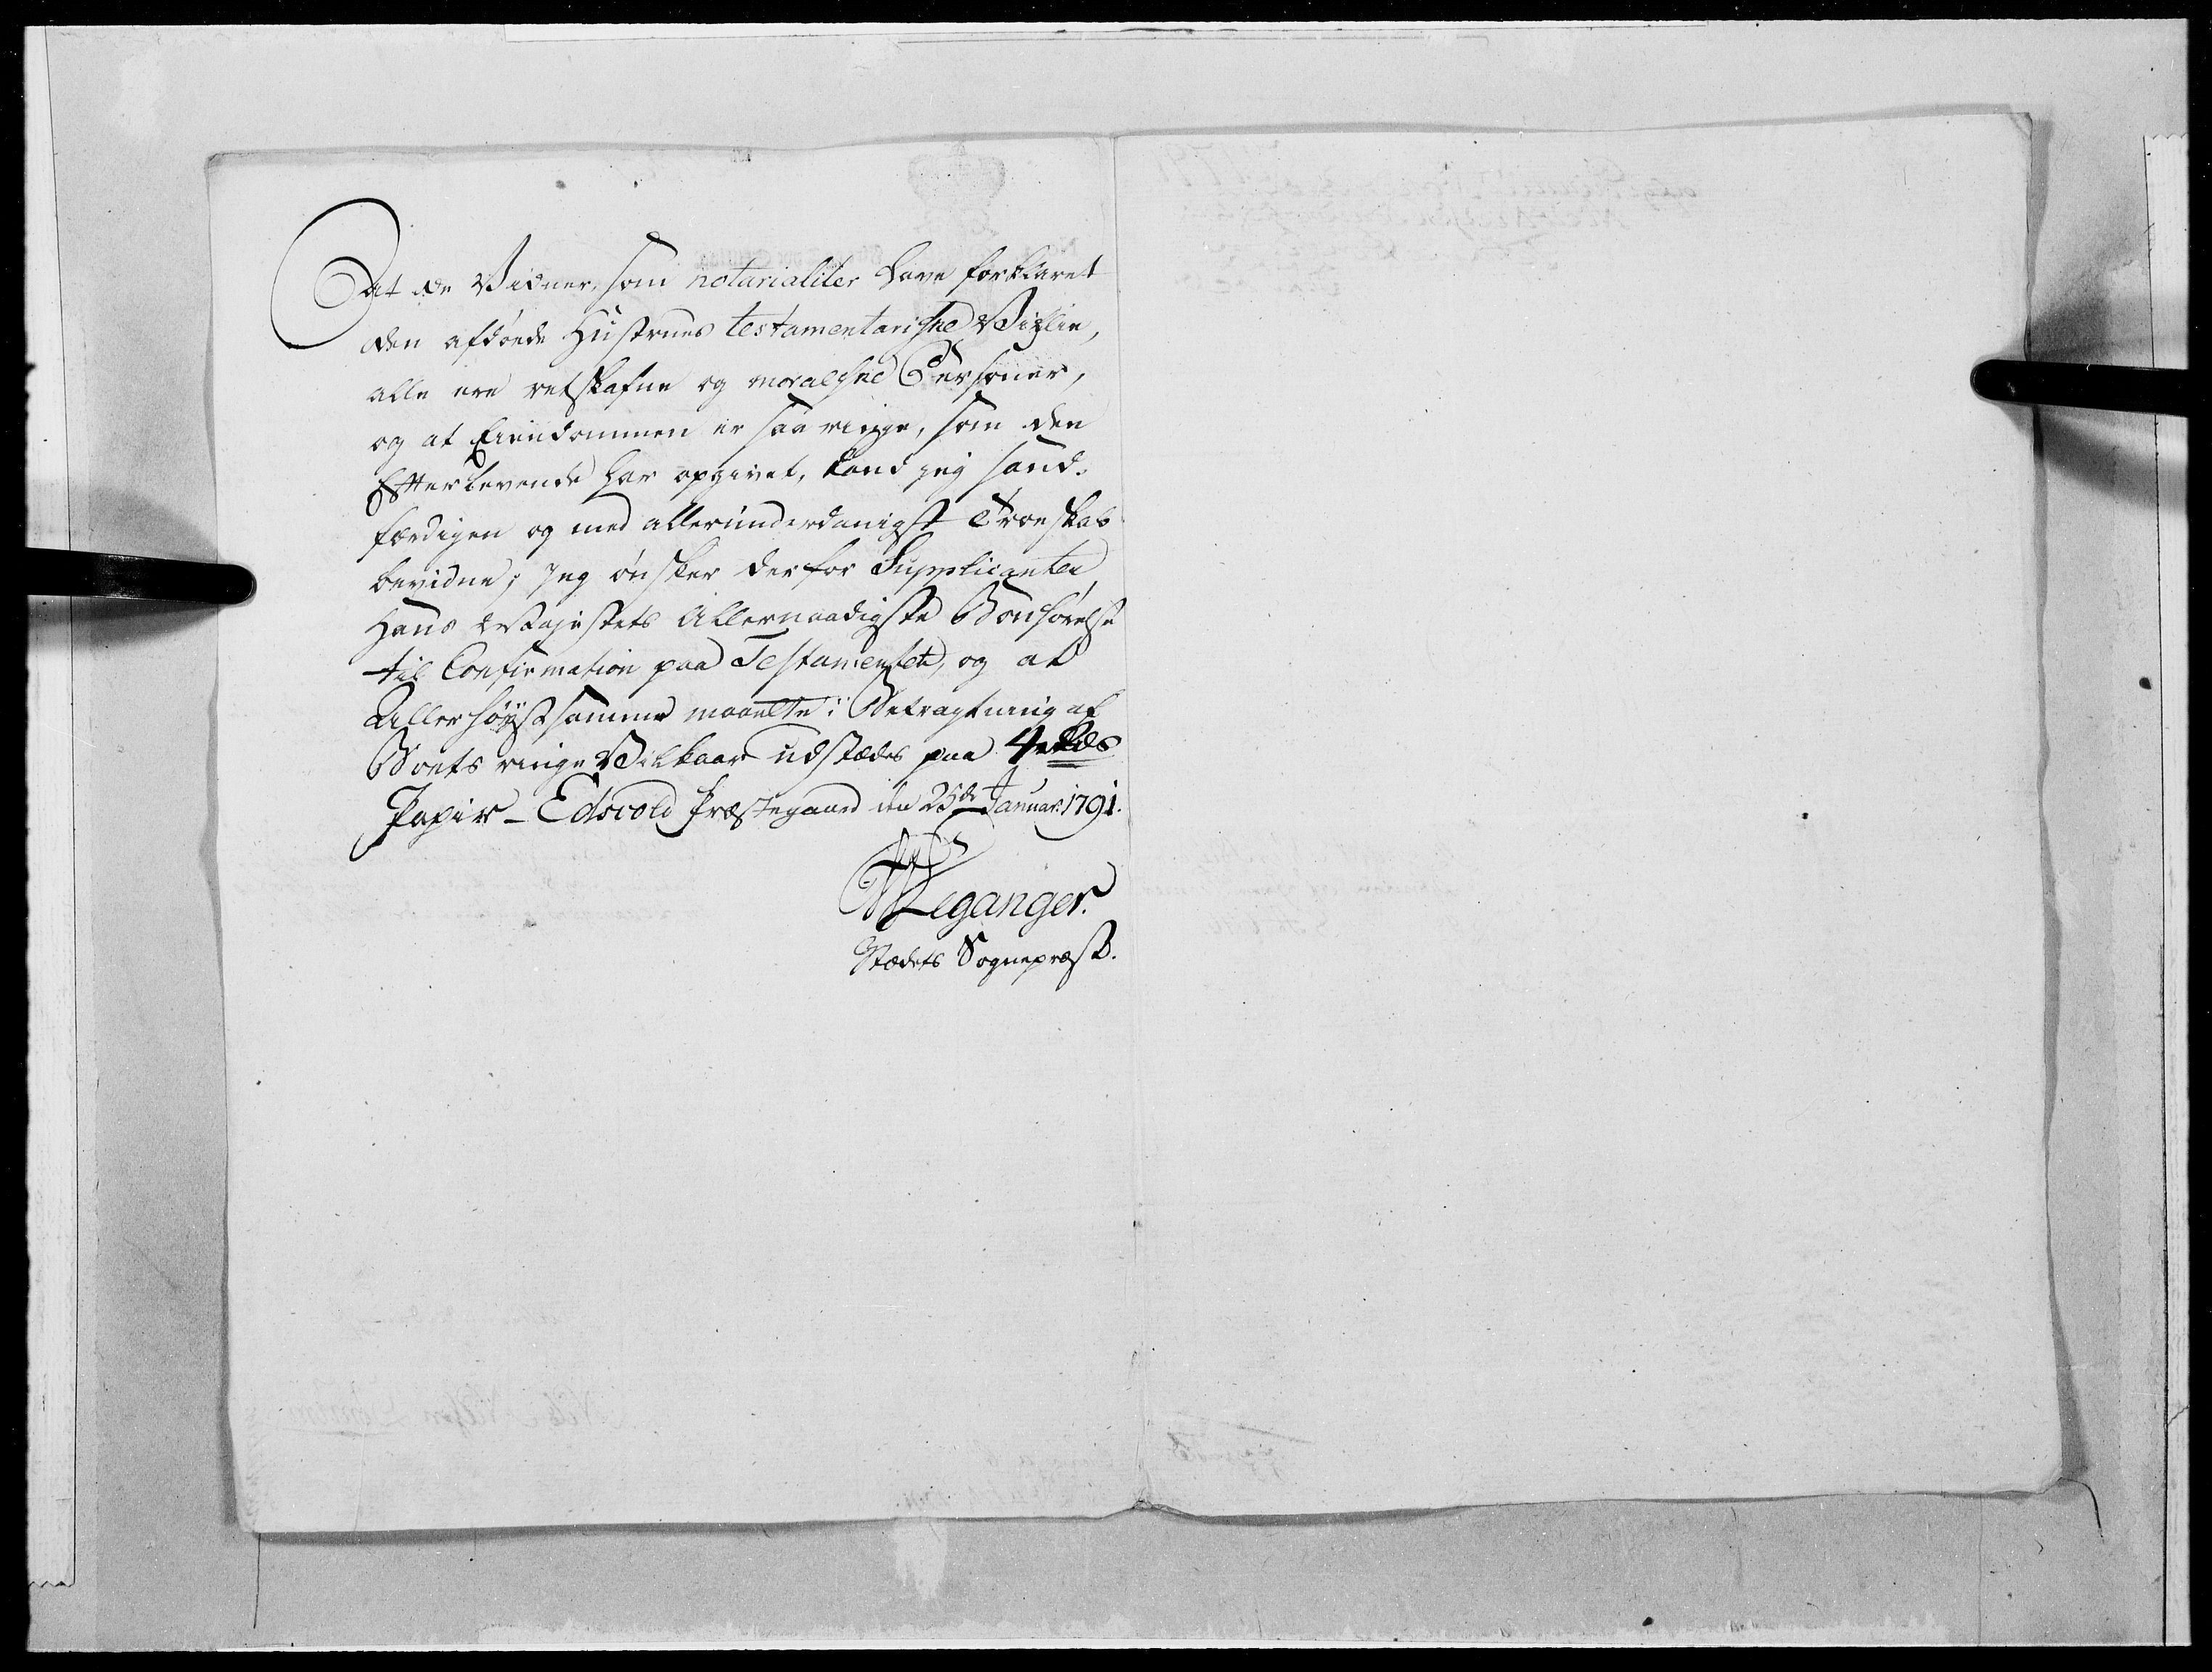 At de Vidner, som notarialiter have forklaret
den afdøde Hustrues testamentariske Villie,
alle ere retskafne og moralske Personer,
og at Eiendommen er saa ringe, som den
Efterlevende har opgivet, kand jeg sand-
færdigen og med allerunderdanigst Troeskab
bevidne; jeg ønsker derfor Supplicanten
Hans Majestets Allernaadigste Bønhørelse
til Confirmation paa Testamentet, og at
Allerhøystsamme maatte i Betragtning af
Boets ringe Vilkaar udstædes paa
Papir – Edsvold Præstegaard den 25de Januar: 1791.
Leganger.
Stædets Sognepræst.